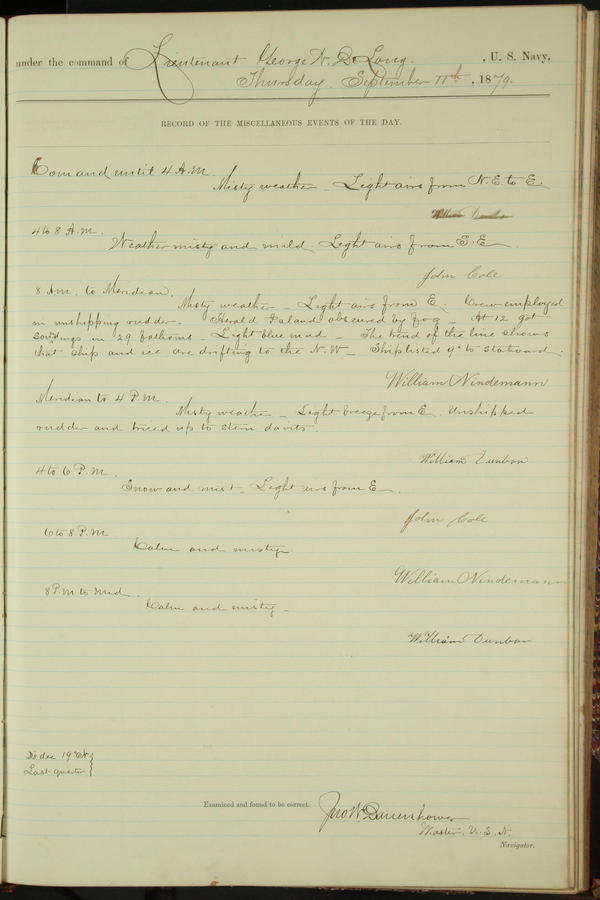 under the command of Lieutenant George W. De Long. , U. S. Navy,
Thursday. September 11th , 1879.
RECORD OF THE MISCELLANEOUS EVENTS OF THE DAY.
Com and until 4 A.M.
Misty weather – Light airs from N.E. to E.
William Dunbar
4 to 8 A.M.
Weather misty and mild. Light airs from S.E.
John Cole
8 A.M. to Meridian.
Misty weather – Light airs from E. Crew employed
in unshipping rudder. Herald Island obscured by fog – At 12 got
soundings in 29 fathoms – Light blue mud – The trend of the line shows
that ship and ice are drifting to the N.W – Ship listed 9° to starboard.
William Nindemann
Meridian to 4 P.M.
Misty weather – Light breeze from E. Unshipped
rudder and triced up to stern davits.
William Dunbar
4 to 6 P.M.
Snow and mist – Light airs from E.
John Cole
6 to 8 P.M.
Calm and misty
William Nindemann
8 P.M to Mid.
Calm and misty –
William Dunbar
19°
Last quarter
Examined and found to be correct. Jno W. Danenhower
Master, U.S.N.
Navigator.